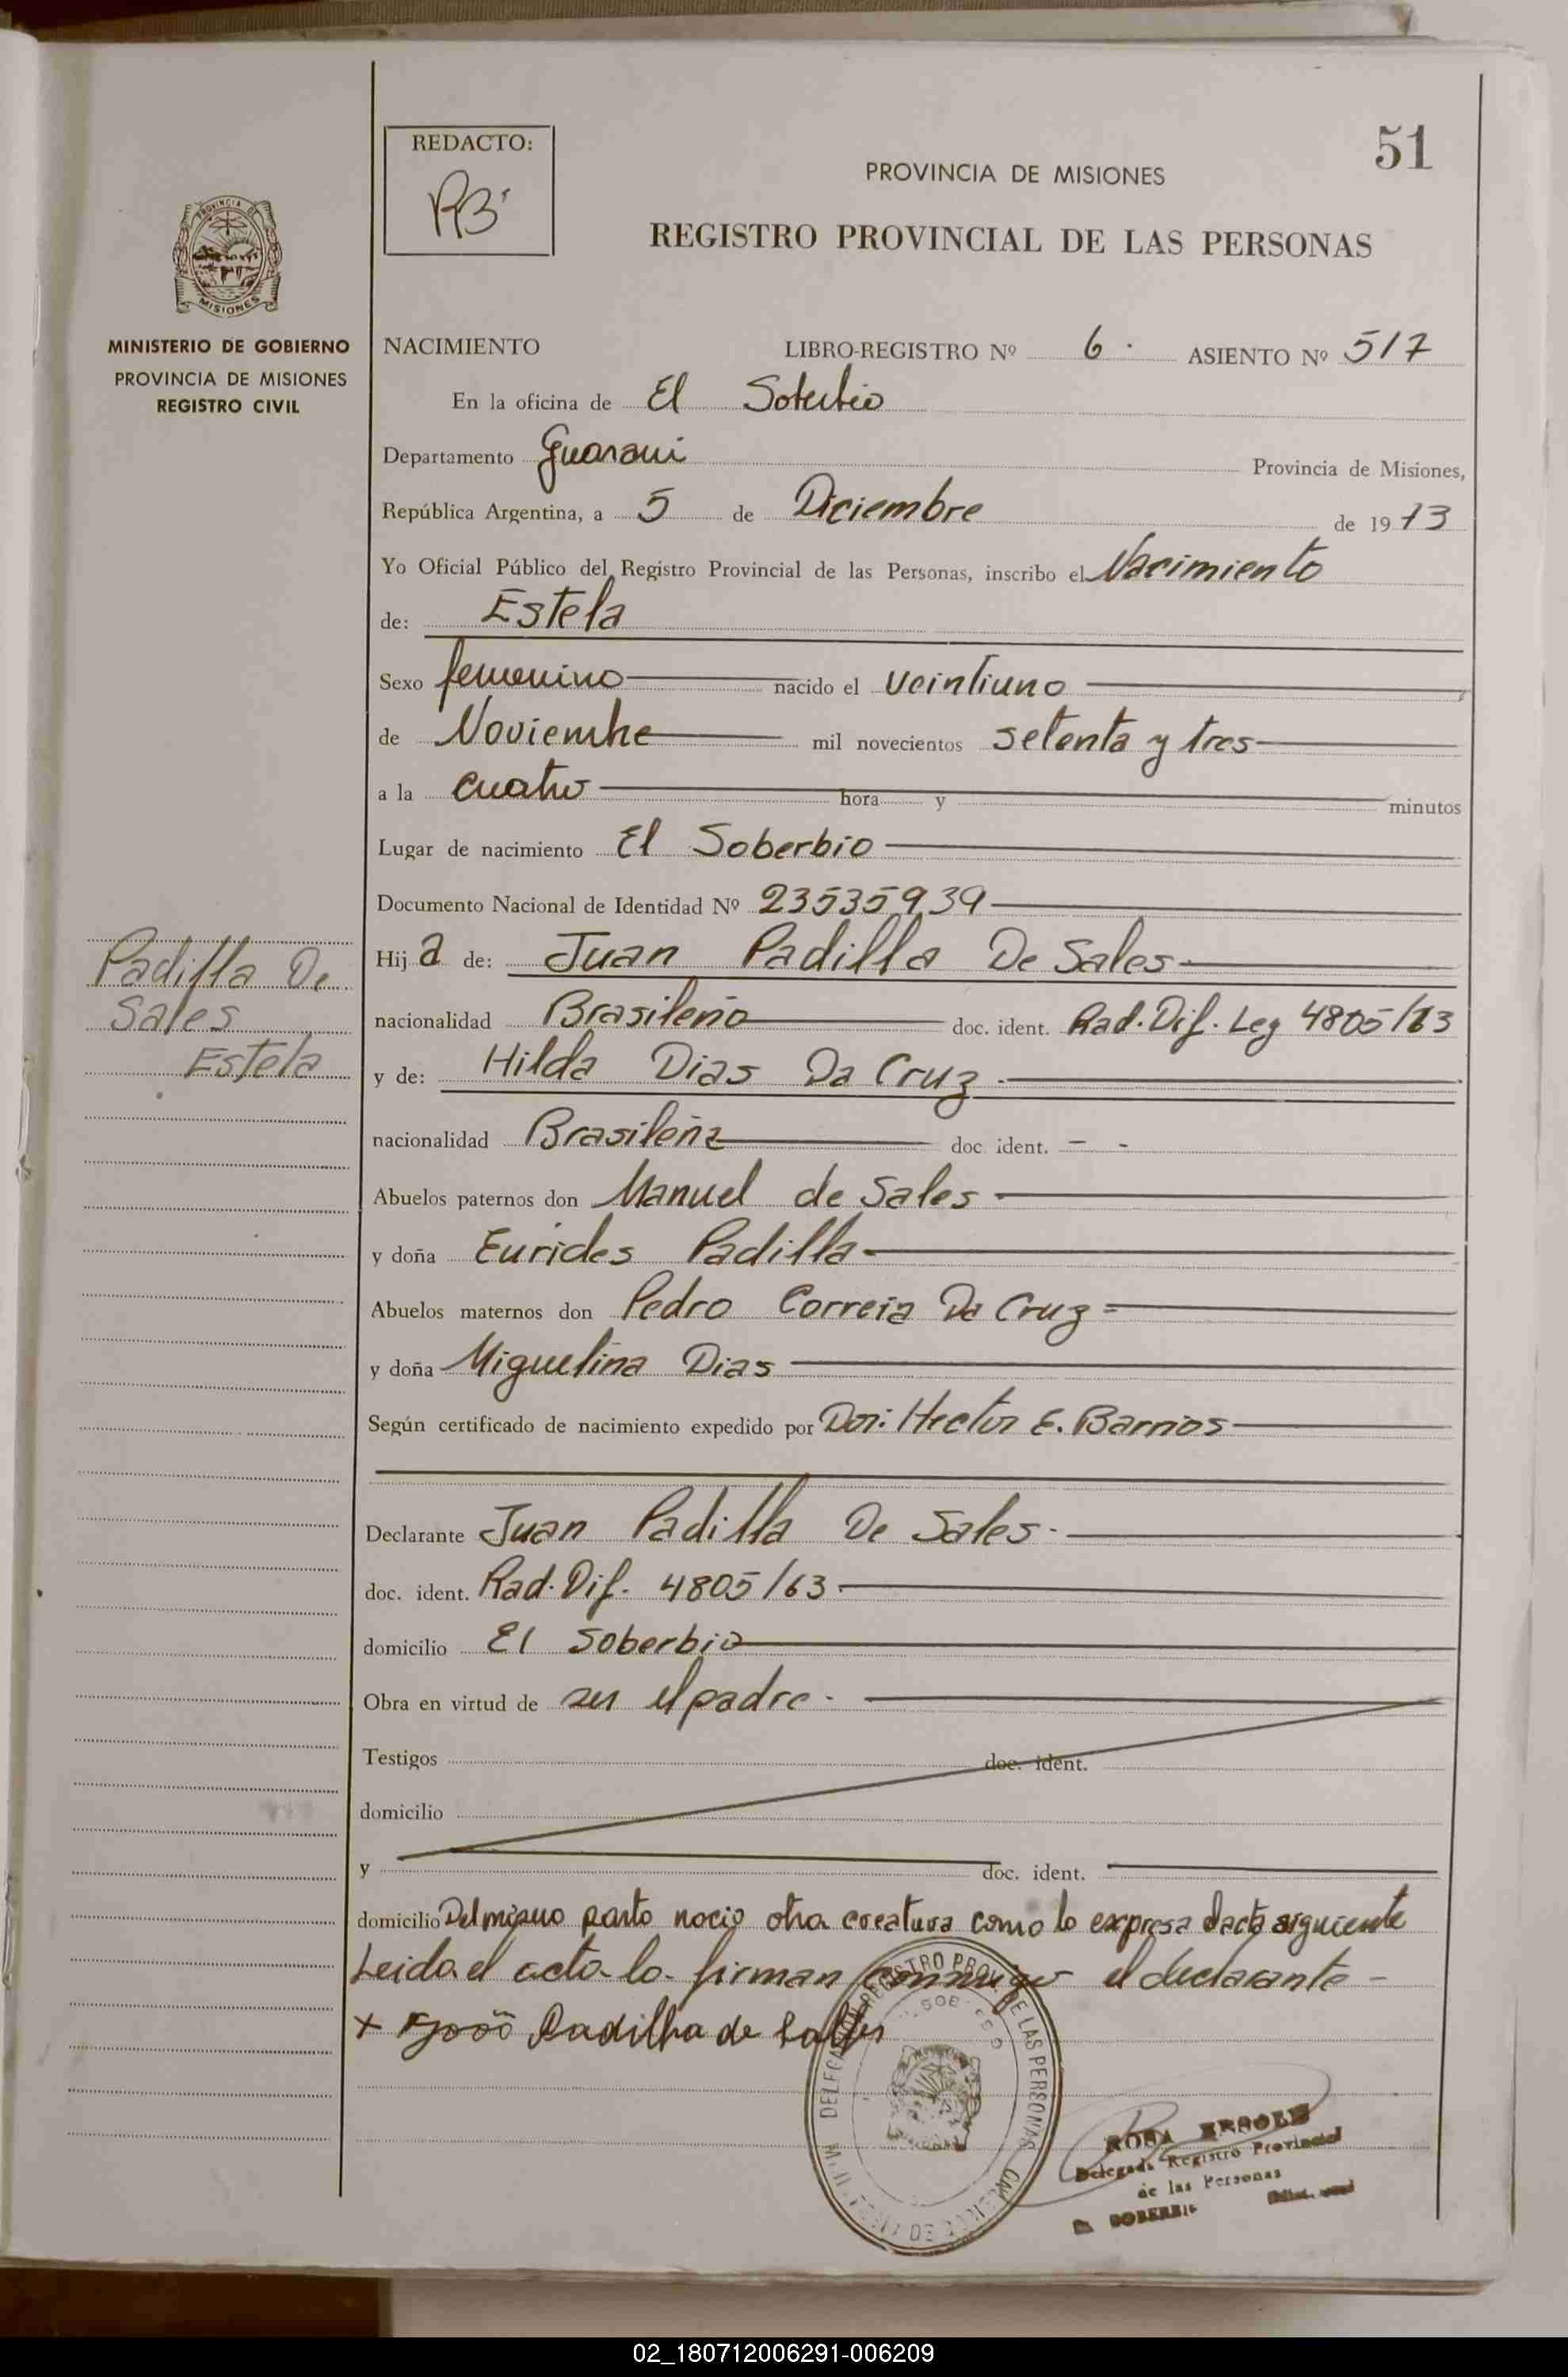 51
REDACTO:
RB
PROVINCIA DE MISIONES
REGISTRO PROVINCIAL DE LAS PERSONAS
PROVINCIA DE
MISIONES
MINISTERIO DE GOBIERNO
PROVINCIA DE MISIONES
REGISTRO CIVIL
NACIMIENTO LIBRO-REGISTRO Nº 6. ASIENTO Nº 517
En la oficina de El Soberbio
Departamento Guarani Provincia de Misiones,
República Argentina, a 5 de Diciembre de 1973
Yo Oficial Público del Registro Provincial de las Personas, inscribo el Nacimiento
de: Estela
Sexo femenino nacido el veintiuno
de Noviembre mil novecientos setenta y tres
a la cuatro hora y minutos
Lugar de nacimiento El Soberbio
Documento Nacional de Identidad Nº 23535939
Padilla De
Sales
Estela
Hija de: Juan Padilla De Sales
nacionalidad Brasileño doc. ident. Rad. Dif. Leg 4805/63
y de: Hilda Dias Da Cruz.
nacionalidad Brasileña doc. ident. - -
Abuelos paternos don Manuel de Sales
y doña Eurides Padilla
Abuelos maternos don Pedro Correia Da Cruz
y doña Miguelina Dias
Según certificado de nacimiento expedido por Don: Hector E. Barrios
Declarante Juan Padilla De Sales.
doc. ident. Rad. Dif. 4805/63
domicilio El Soberbio
Obra en virtud de ser el padre.
Testigos doc. ident.
domicilio
y doc. ident.
domicilio Del mismo parto nacio otra creatura como lo expresa el acta siguiente
Leida el acta lo firman conmigo el declarante -
x João Padilha de Salles
DELEGACION REGISTRO PROV. DE LAS PERSONAS
ROSA
Delegada Registro Provincial
de las Personas
EL SOBERBIO
02_180712006291-006209